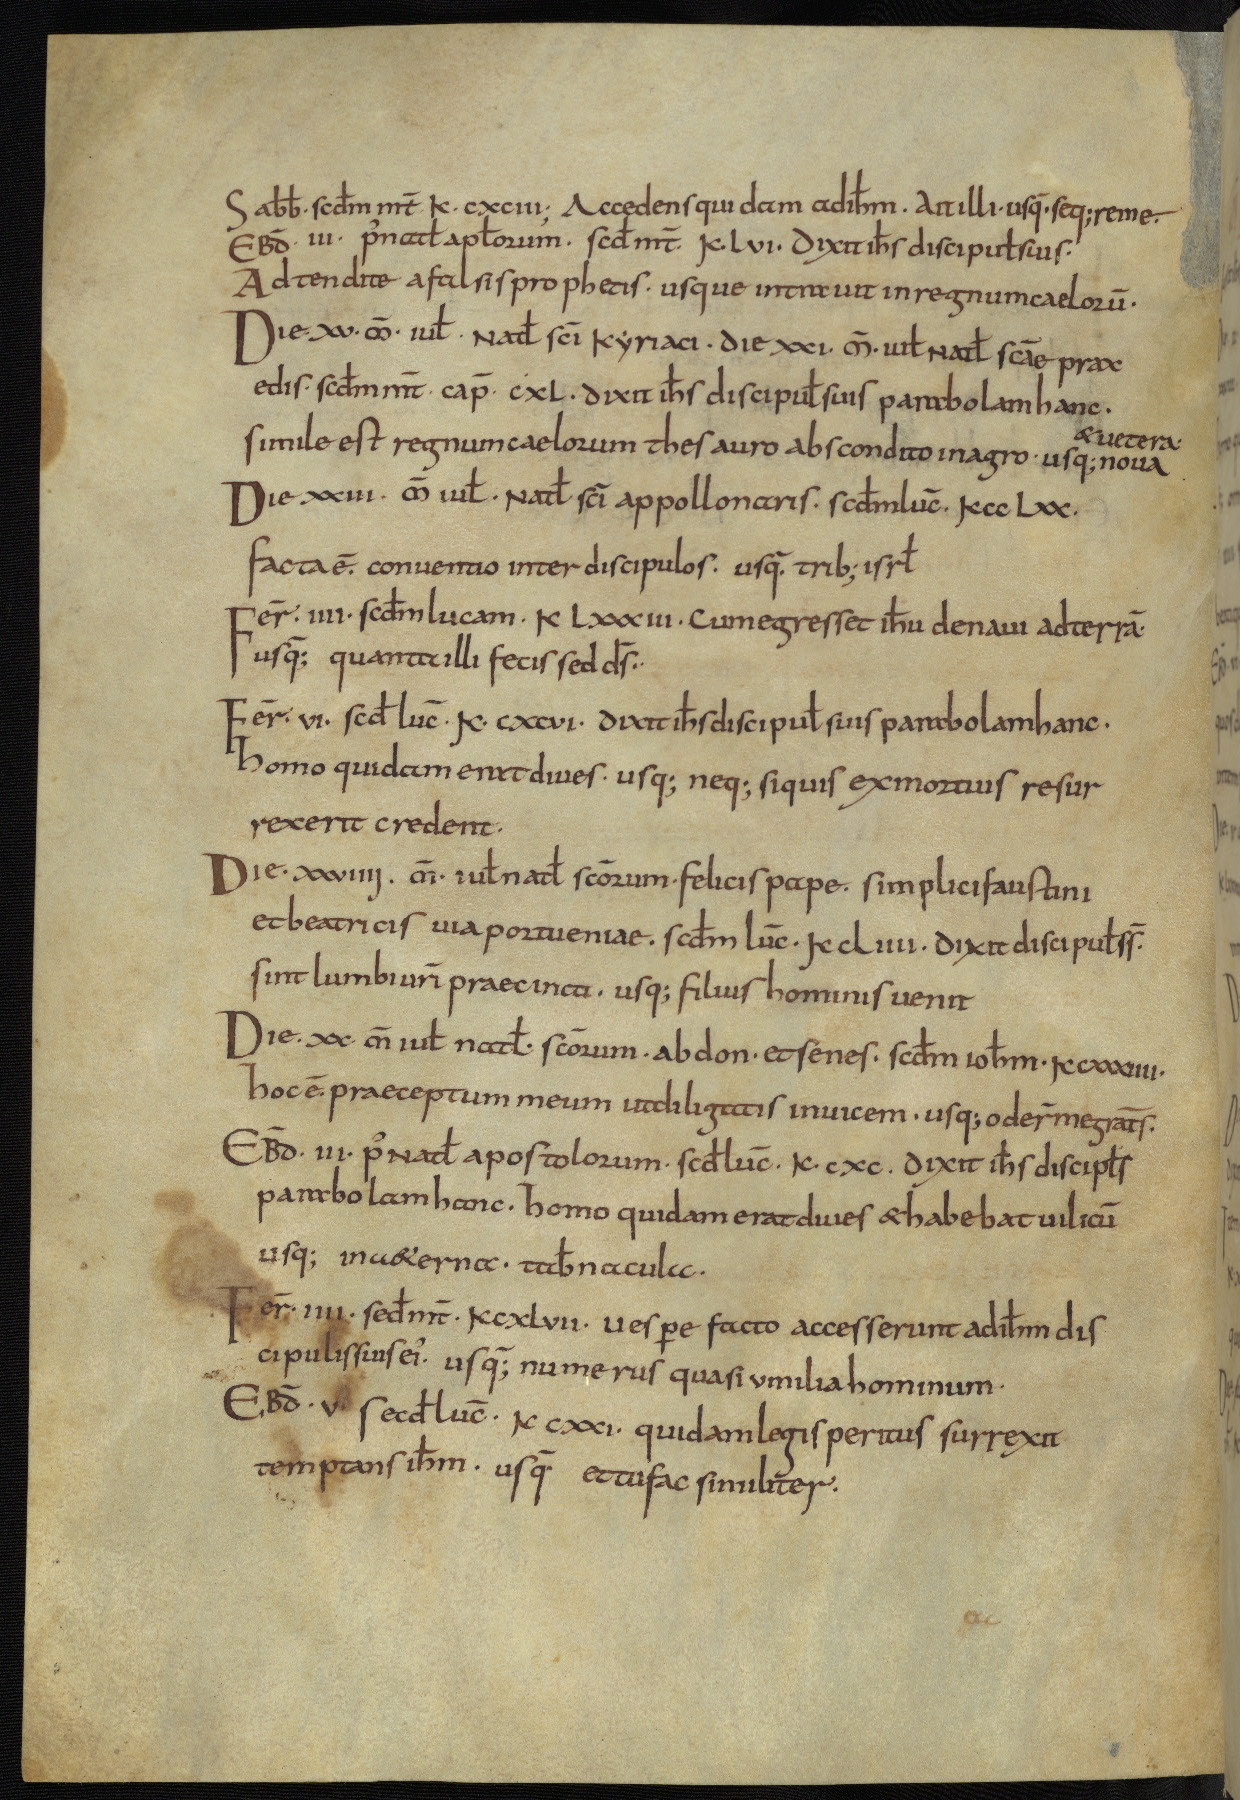 Sabb̄. scd̄m mt̄ K. cxciii; Accedens quidam adih̄m. Aitilli. usq̄. seq; reme.
EBD̄. iii. p̾natl̄ apl̄orum. scd̄ mt̄. K. Lvi. Dixit ih̄s discipul̄ suis.
Adtendite afalsis prophetis. usque intrauit inregnum caelorū.
Die. xv. m̄. iul̄. Natl̄ sc̄i Kyriaci. die xxi. m̄. iul̄ Natl̄ sc̄ae prax
edis. scd̄m mt̄. cap̄. cxL. dixit ih̄s discipul̄ suis parabolam hanc.
simile est regnum caelorum thesauro abscondito inagro. usq; noua
& uetera.
Die xxiii. m̄ iul̄. Natl̄ sc̄i appollonaris. scd̄m luc̄. Kcc Lxx.
facta ē. conuentio inter discipulos. usq̄. trib; isrl̄
Fer̄. iiii. scd̄m lucam. K Lxxxiii. Cumegresset ih̄u denaui adterrā.
usq̄; quanta illi fecis sed ds̄.
Fer̄. vi. scd̄ luc̄. K. cxcvi. dixit ih̄s discipul̄ suis parabolam hanc.
homo quidam erat diues. usq; neq; siquis exmortuis resur
rexerit credent.
Die. xxviiii. m̄. iul̄ natl̄ scōrum. felicis pape. simplici faustini
et beatricis uia portueniae. scd̄m luc̄. K cLiiii. dixit discipul̄ ss̄.
sint lumbi uri̅ praecincti. usq; filius hominis uenit
Die. xx. m̄ iul̄ natl̄. scōrum. abdon. et senes. scd̄m ioh̄m. K cxxxiiii.
hoc ē. praeceptum meum utdiligatis inuicem. usq; oder̄ me grat̄s.
EBD̄. iii. p̾ Natl̄ apostolorum. scd̄ luc̄. K. cxc. dixit ih̄s discipl̄s
parabolam hanc. homo quidam erat diues & habebat uilicū
usq; in&erna. tab̄nacula.
Fer̄. iiii. scd̄ mt̄. K cxLvii. uespe facto accesserunt adih̄m dis
cipulissuisei̾. usq̄; numerus quasi v milia hominum.
EBD̄. v. secd̄ luc̄. K cxxi. quidam legis peritus surrexit
temptans ih̄m. usq̄ et tu fac similit̄er.